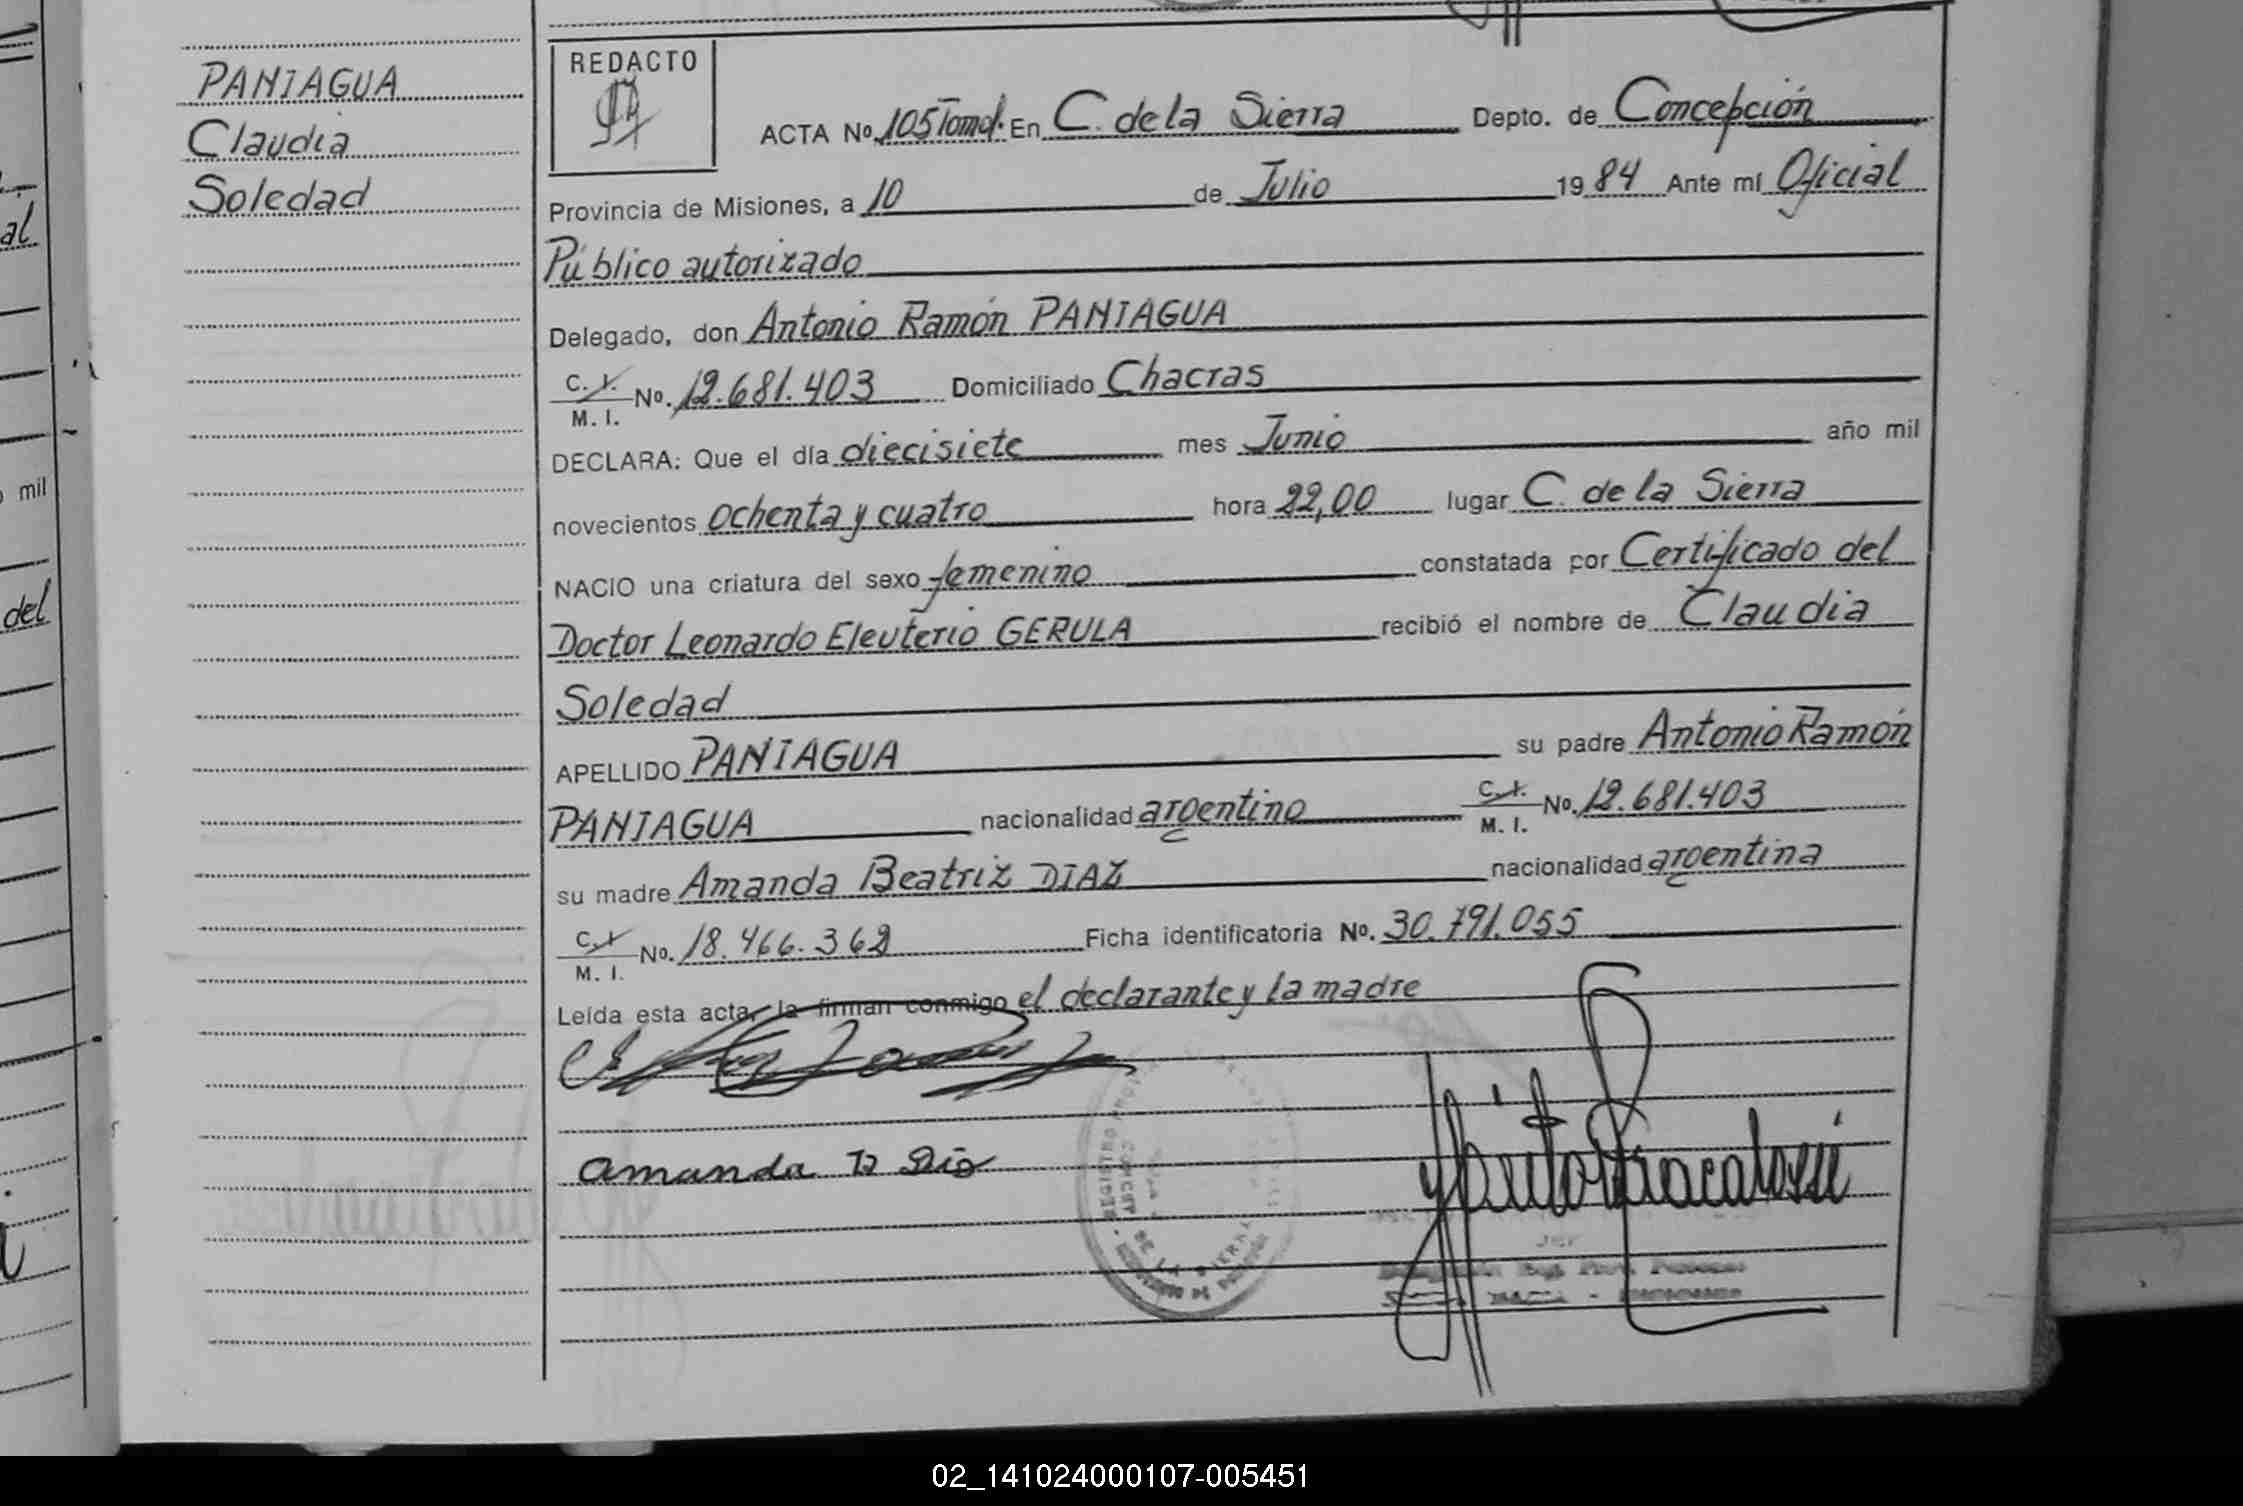 PANIAGUA
Claudia
Soledad
REDACTO
ACTA No. 105 Tomo I. En C. de la Sierra Depto. de Concepción
Provincia de Misiones, a 10 de Julio 1984 Ante mí Oficial
Público autorizado
Delegado, don Antonio Ramón PANIAGUA
C. I. M. I. No. 12.681.403 Domiciliado Chacras
DECLARA: Que el día diecisiete mes Junio año mil
novecientos ochenta y cuatro hora 22,00 lugar C. de la Sierra
NACIO una criatura del sexo femenino constatada por Certificado del
Doctor Leonardo Eleuterio GERULA recibió el nombre de Claudia
Soledad
APELLIDO PANIAGUA su padre Antonio Ramón
PANIAGUA nacionalidad argentino C. I. M. I. No. 12.681.403
su madre Amanda Beatriz DIAZ nacionalidad argentina
C. I. M. I. No. 18.466.362 Ficha identificatoria No. 30.791.055
Leída esta acta, la firman conmigo el declarante y la madre
Amanda B
al
mil
del
02_141024000107-005451